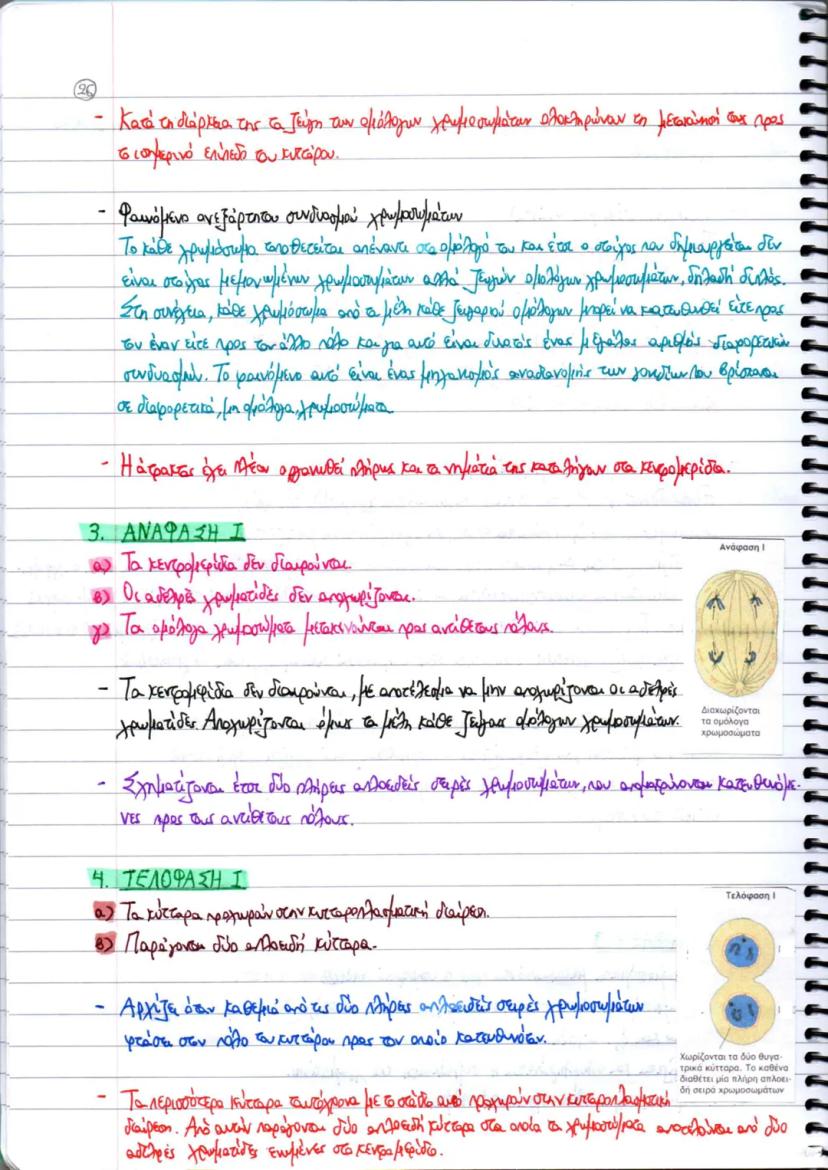 26
- Κατά τη διάρκεια της τα ζεύγη των ομόλογων χρωμοσωμάτων ολοκληρώνουν τη μετακίνησή τους προς
το ισημερινό επίπεδο του κυττάρου.
- Φαινόμενο ανεξάρτητου συνδυασμού χρωμοσωμάτων
Το κάθε χρωμόσωμα τοποθετείται απέναντι στο ομόλογό του και έτσι ο στοίχος που δημιουργείται δεν
είναι στοίχος μεμονωμένων χρωμοσωμάτων αλλά ζευγών ομολόγων χρωμοσωμάτων, δηλαδή διπλός.
Στη συνέχεια, κάθε χρωμόσωμα από τα μέλη κάθε ζευγαριού ομολόγων μπορεί να κατευθυνθεί είτε προς
τον έναν είτε προς τον άλλο πόλο και για αυτό είναι δυνατός ένας μεγάλος αριθμός διαφορετικών
συνδυασμών. Το φαινόμενο αυτό είναι ένας μηχανισμός ανακατανομής των γονιδίων που βρίσκονται
σε διαφορετικά, μη ομόλογα, χρωμοσώματα.
- Η άτρακτος έχει πλέον οργανωθεί πλήρως και τα νημάτιά της καταλήγουν στα κεντρομερίδια.
3. ΑΝΑΦΑΣΗ Ι
α) Τα κεντρομερίδια δεν διαιρούνται.
β) Οι αδελφές χρωματίδες δεν αποχωρίζονται.
γ) Τα ομόλογα χρωμοσώματα μετακινούνται προς αντίθετους πόλους.
Ανάφαση Ι
- Τα κεντρομερίδια δεν διαιρούνται, με αποτέλεσμα να μην αποχωρίζονται οι αδελφές
χρωματίδες. Αποχωρίζονται όμως τα μέλη κάθε ζεύγους ομόλογων χρωμοσωμάτων.
Διαχωρίζονται
τα ομόλογα
χρωμοσώματα
- Σχηματίζονται έτσι δύο πλήρεις απλοειδείς σειρές χρωμοσωμάτων, που απομακρύνονται κατευθυνόμε-
νες προς τους αντίθετους πόλους.
4. ΤΕΛΟΦΑΣΗ Ι
α) Τα κύτταρα προχωρούν στην κυτταροπλασματική διαίρεση.
β) Παράγονται δύο απλοειδή κύτταρα.
Τελόφαση Ι
- Αρχίζει όταν καθεμιά από τις δύο πλήρεις απλοειδείς σειρές χρωμοσωμάτων
φτάσει στον πόλο του κυττάρου προς τον οποίο κατευθυνόταν.
Χωρίζονται τα δύο θυγα-
τρικά κύτταρα. Το καθένα
διαθέτει μία πλήρη απλοει-
δή σειρά χρωμοσωμάτων
- Τα περισσότερα κύτταρα ταυτόχρονα με το στάδιο αυτό προχωρούν στην κυτταροπλασματική
διαίρεση. Από αυτήν παράγονται δύο απλοειδή κύτταρα στα οποία τα χρωμοσώματα αποτελούνται από δύο
αδελφές χρωματίδες ενωμένες στο κεντρομερίδιο.